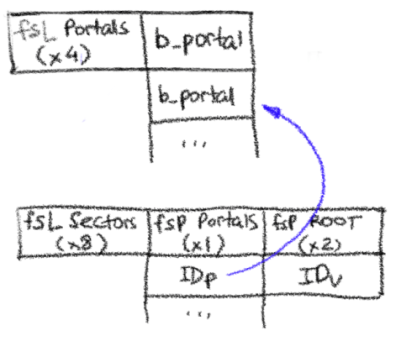 fsL Portals b_portal
(x4)
b_portal
...
fsL Sectors fsP Portals fsP ROOT
(x8) (x1) (x2)
IDp IDv
...